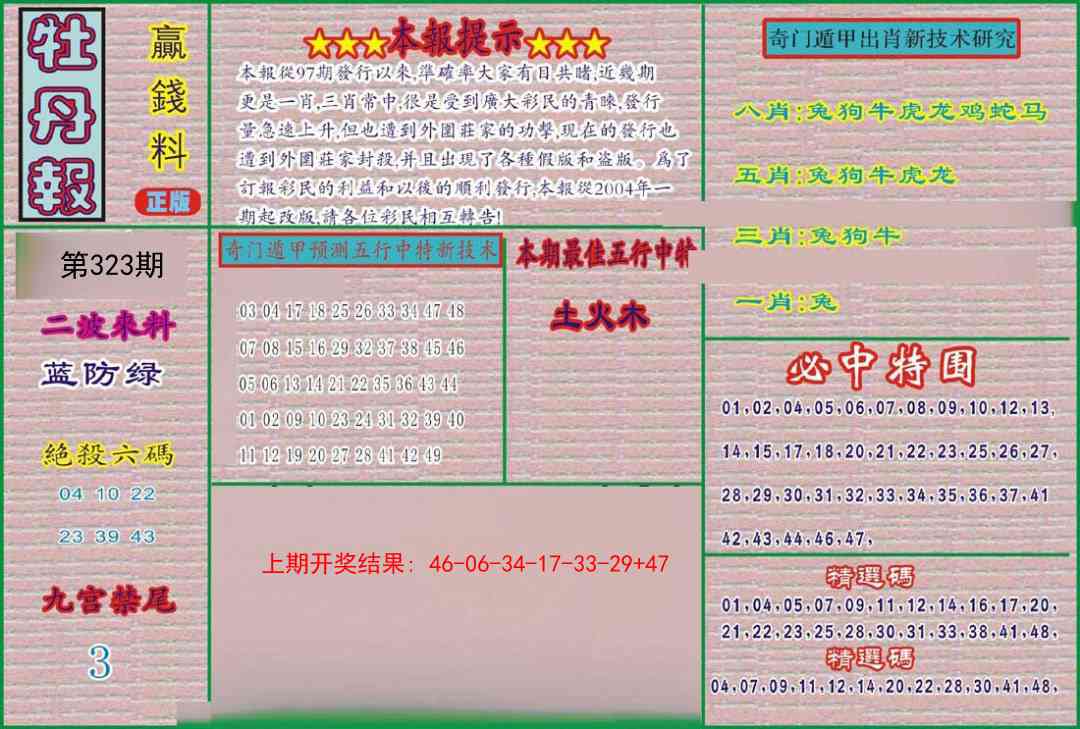 牡丹報
贏錢料
正版
第323期
二波來料
蓝防绿
絕殺六碼
04 10 22
23 39 43
九宫禁尾
3
★★★本報提示★★★
本報從97期發行以來,準確率大家有目共睹,近幾期
更是一肖,三肖常中,很是受到廣大彩民的青睞,發行
量急速上升,但也遭到外圍莊家的功擊,現在的發行也
遭到外圍莊家封殺,并且出現了各種假版和盗版。爲了
訂報彩民的利益和以後的順利發行,本報從2004年一
期起改版,請各位彩民相互轉告!
奇门遁甲预测五行中特新技术
03 04 17 18 25 26 33 34 47 48
07 08 15 16 29 32 37 38 45 46
05 06 13 14 21 22 35 36 43 44
01 02 09 10 23 24 31 32 39 40
11 12 19 20 27 28 41 42 49
本期最佳五行中特
土火木
上期开奖结果：46-06-34-17-33-29+47
奇门遁甲出肖新技术研究
八肖:兔狗牛虎龙鸡蛇马
五肖:兔狗牛虎龙
三肖:兔狗牛
一肖:兔
必中特围
01,02,04,05,06,07,08,09,10,12,13,
14,15,17,18,20,21,22,23,25,26,27,
28,29,30,31,32,33,34,35,36,37,41
42,43,44,46,47,
精選碼
01,04,05,07,09,11,12,14,16,17,20,
21,22,23,25,28,30,31,33,38,41,48,
精選碼
04,07,09,11,12,14,20,22,28,30,41,48,